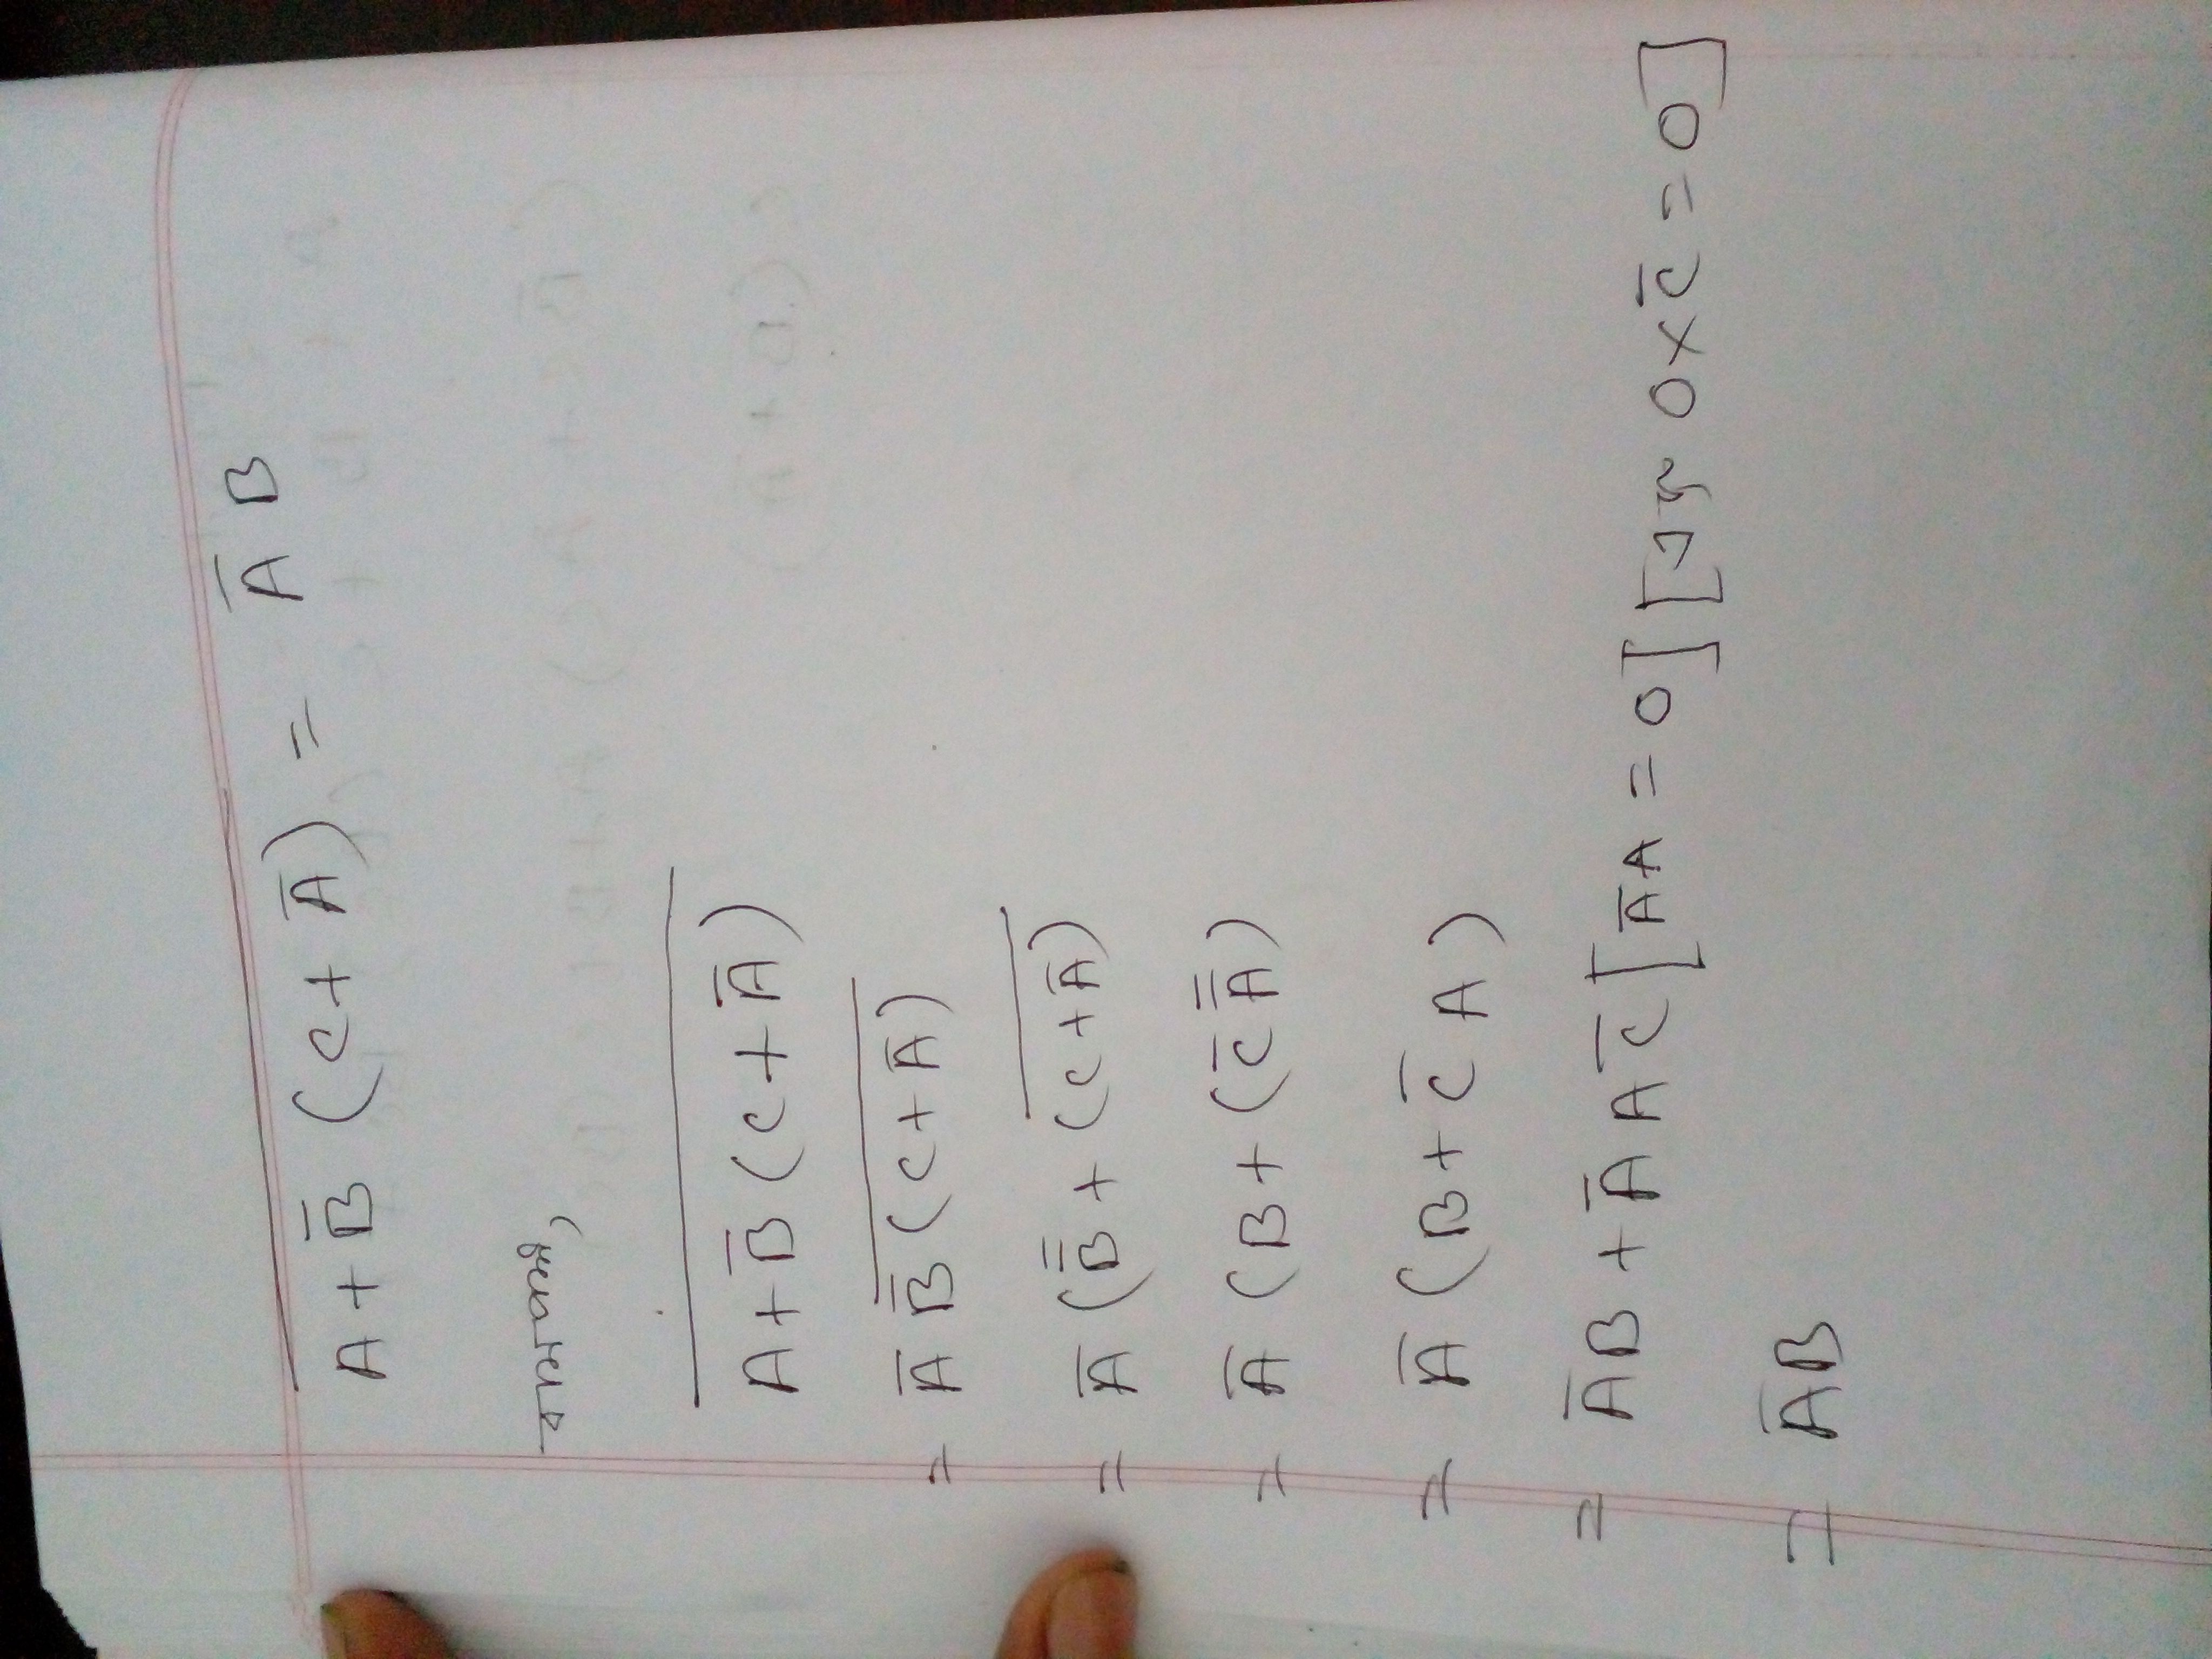 A̅+̅B̅̅ ̅(̅C̅+̅A̅̅)̅ = A̅ B
বামপক্ষ,
A̅+̅B̅̅(̅C̅+̅A̅̅)̅
= A̅ B̅̅(̅C̅+̅A̅̅)̅
= A̅ (B̅̅ + (̅C̅+̅A̅̅)̅
= A̅ (B + (C̅ A̅̅)
= A̅ (B + C̅ A)
= A̅B + A̅ A C̅ [A̅A = 0] [ 0×C̅ = 0]
= A̅B